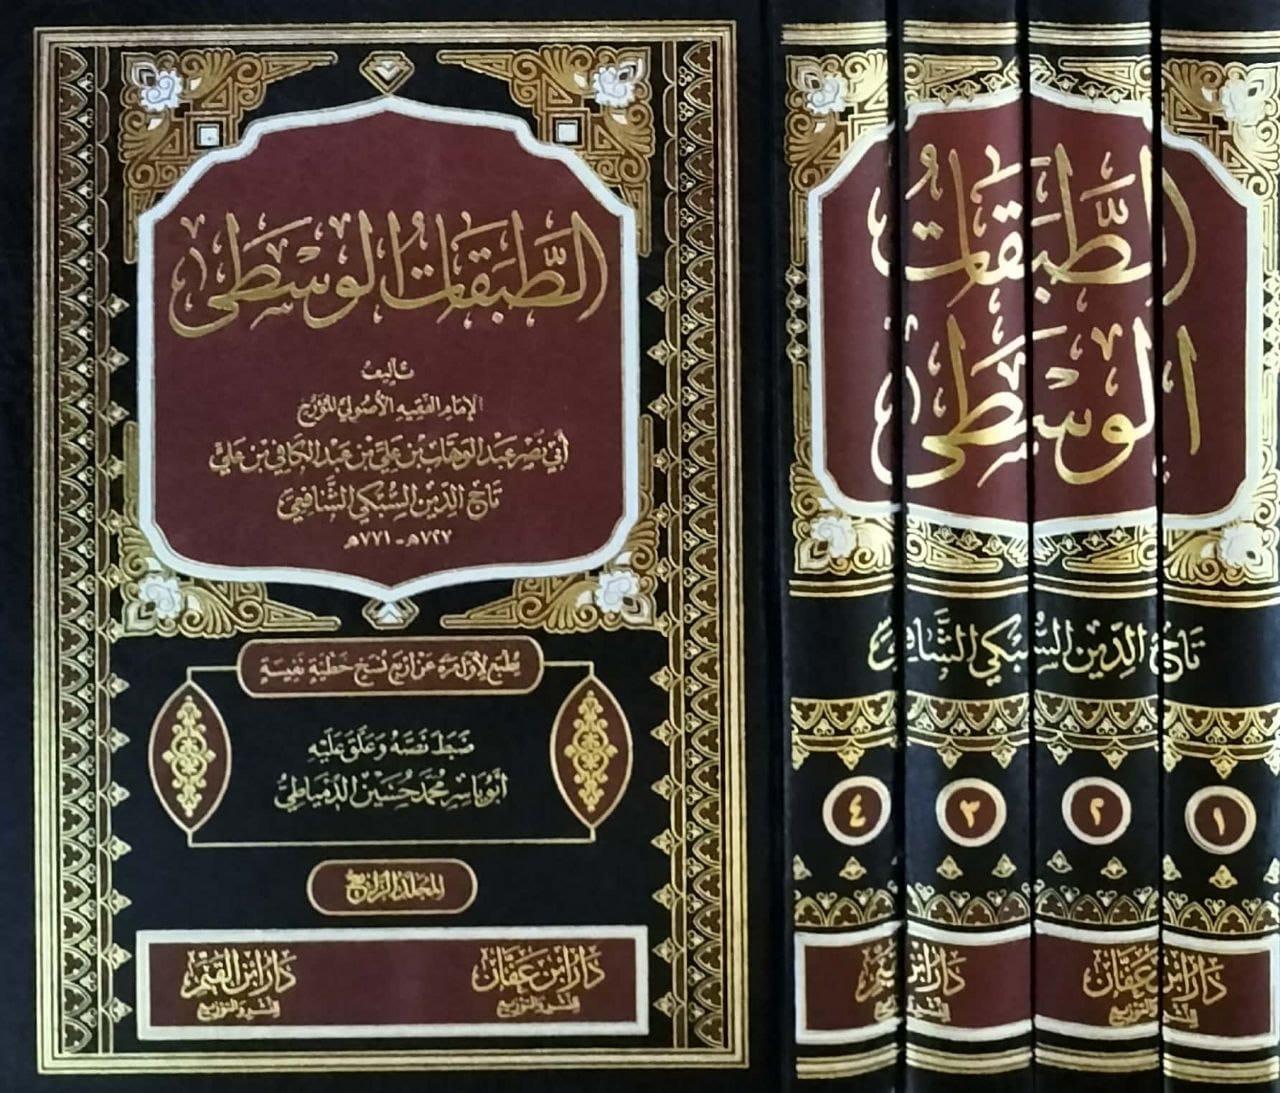 الطَّبَقَاتُ الوُسْطَى
تأليف
الإمام الفقيه الأصولي المؤرخ
أبي نصر عبد الوهاب بن علي بن عبد الكافي بن علي
تاج الدين السبكي الشافعي
٧٢٧هـ - ٧٧١هـ
يُطبع لأول مرة عن أربع نسخ خطية نفيسة
ضبط نصه وعلق عليه
أبو ياسر محمد حسين الدمياطي
المجلد الرابع
دار ابن عفان
للنشر والتوزيع
دار ابن القيم
للنشر والتوزيع
الطَّبَقَاتُ
الوُسْطَى
تاج الدين السبكي الشافعي
١
٢
٣
٤
دار ابن عفان
للنشر والتوزيع
دار ابن القيم
للنشر والتوزيع